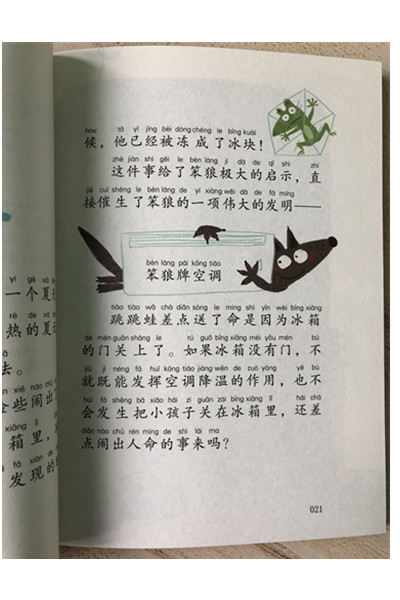 yí gè xà
一个夏
rè de xià
热的夏
去。
xiē nào chū
些闹出
箱里，
fā xiàn de
发现的
hou tā yǐ jīng bèi dòng chéng le bīng kuài
候，他已经被冻成了冰块！
zhè jiàn shì gěi le bèn láng jí dà de qǐ shì zhí
这件事给了笨狼极大的启示，直
jiē cuī shēng le bèn láng de yí xiàng wěi dà de fā míng
接催生了笨狼的一项伟大的发明——
bèn láng pái kōng tiáo
笨狼牌空调
tiào tiào wā chà diǎn sòng le mìng shì yīn wèi bīng xiāng
跳跳蛙差点送了命是因为冰箱
de mén guān shàng le rú guǒ bīng xiāng méi yǒu mén bù
的门关上了。如果冰箱没有门，不
jiù jì néng fā huī kōng tiáo jiàng wēn de zuò yòng yě bú
就既能发挥空调降温的作用，也不
huì fā shēng bǎ xiǎo hái zi guān zài bīng xiāng lǐ hái chà
会发生把小孩子关在冰箱里，还差
diǎn nào chū rén mìng de shì lái ma
点闹出人命的事来吗？
021